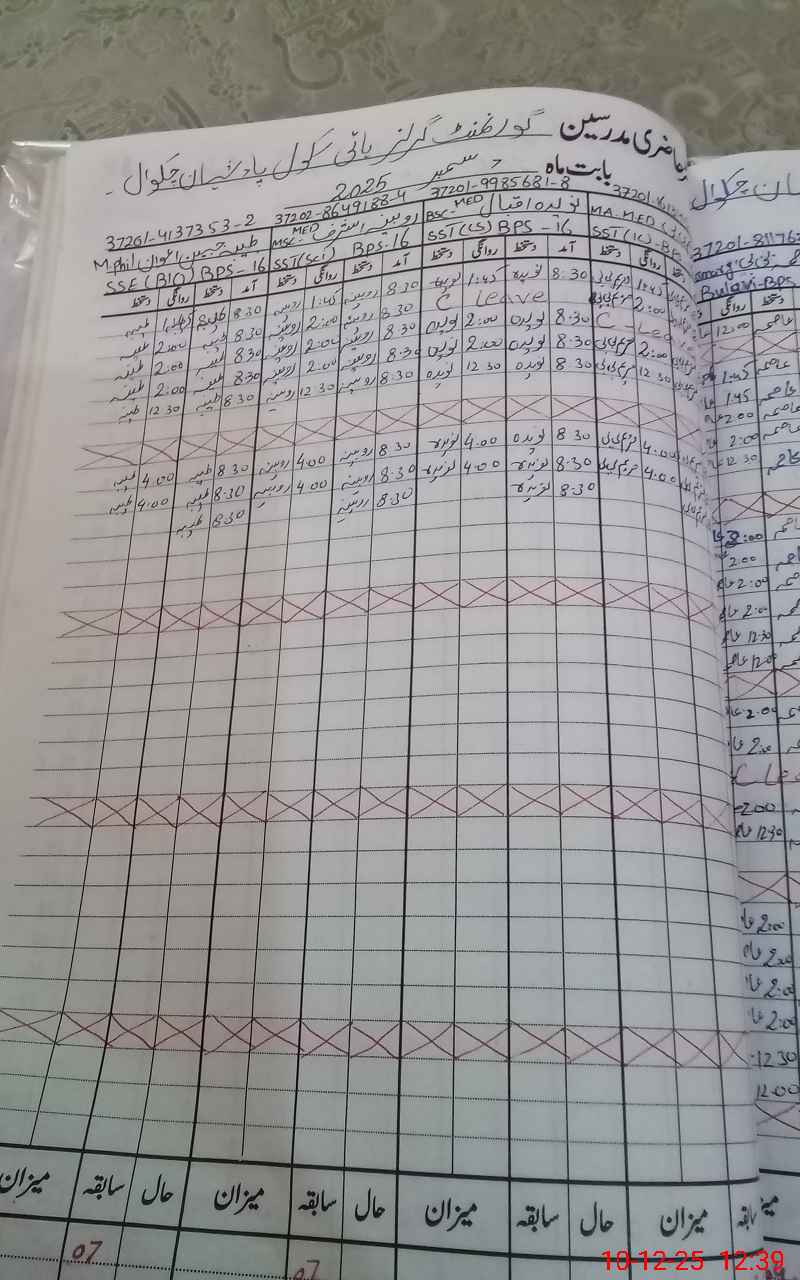 حاضری مدرسین گورنمنٹ گرلز ہائی سکول پادشہان چکوال۔
بابت ماہ دسمبر 2025
37201-4137353-2 37202-8649188-4 37201-9985681-8 37201-
M.Phil طیبہ جبین اعوان MSc. MED روبینہ اشرف BSc. MED نویدہ اقبال MA. MED
SSE (BIO) BPS-16 SST (Sci) BPS-16 SST (CS) BPS-16 SST (IC)-BP
دستخط روانگی دستخط آمد دستخط روانگی دستخط آمد دستخط روانگی دستخط آمد دستخط روانگی دستخط
طیبہ 1:45 طیبہ 8:30 روبینہ 1:45 روبینہ 8:30 نویدہ 1:45 نویدہ 8:30 مریم بی بی 1:45
طیبہ 2:00 طیبہ 8:30 روبینہ 2:00 روبینہ 8:30 C Leave مریم بی بی 2:00
طیبہ 2:00 طیبہ 8:30 روبینہ 2:00 روبینہ 8:30 نویدہ 2:00 نویدہ 8:30 C-Lea
طیبہ 2:00 طیبہ 8:30 روبینہ 2:00 روبینہ 8:30 نویدہ 2:00 نویدہ 8:30 مریم بی بی 2:00
طیبہ 12 30 طیبہ 8:30 روبینہ 12 30 روبینہ 8:30 نویدہ 12 30 نویدہ 8:30 مریم بی بی 12 30
طیبہ 4.00 طیبہ 8 30 روبینہ 4.00 روبینہ 8 30 نویدہ 4.00 نویدہ 8 30 مریم بی بی 4.00
طیبہ 4.00 طیبہ 8.30 روبینہ 4.00 روبینہ 8.30 نویدہ 4.00 نویدہ 8.30 مریم بی بی 4.00
طیبہ 8.30 روبینہ 8.30 نویدہ 8.30
میزان سابقہ حال میزان سابقہ حال میزان سابقہ حال میزان سابقہ
07 07
ان چکوال
37201-81176
Bulqvi-BPS
روانگی دستخط
12:00 عاصمہ
1:45 عاصمہ
1:45 عاصمہ
2:00 عاصمہ
2:00 عاصمہ
12 30 عاصمہ
2:00
2:00
2:00
2:00
12:30
12:00
2:00
2:00
C Le
2:00
12:30
2:00
2:00
2:00
2:00
12 30
12.00
10-12-25 12:39